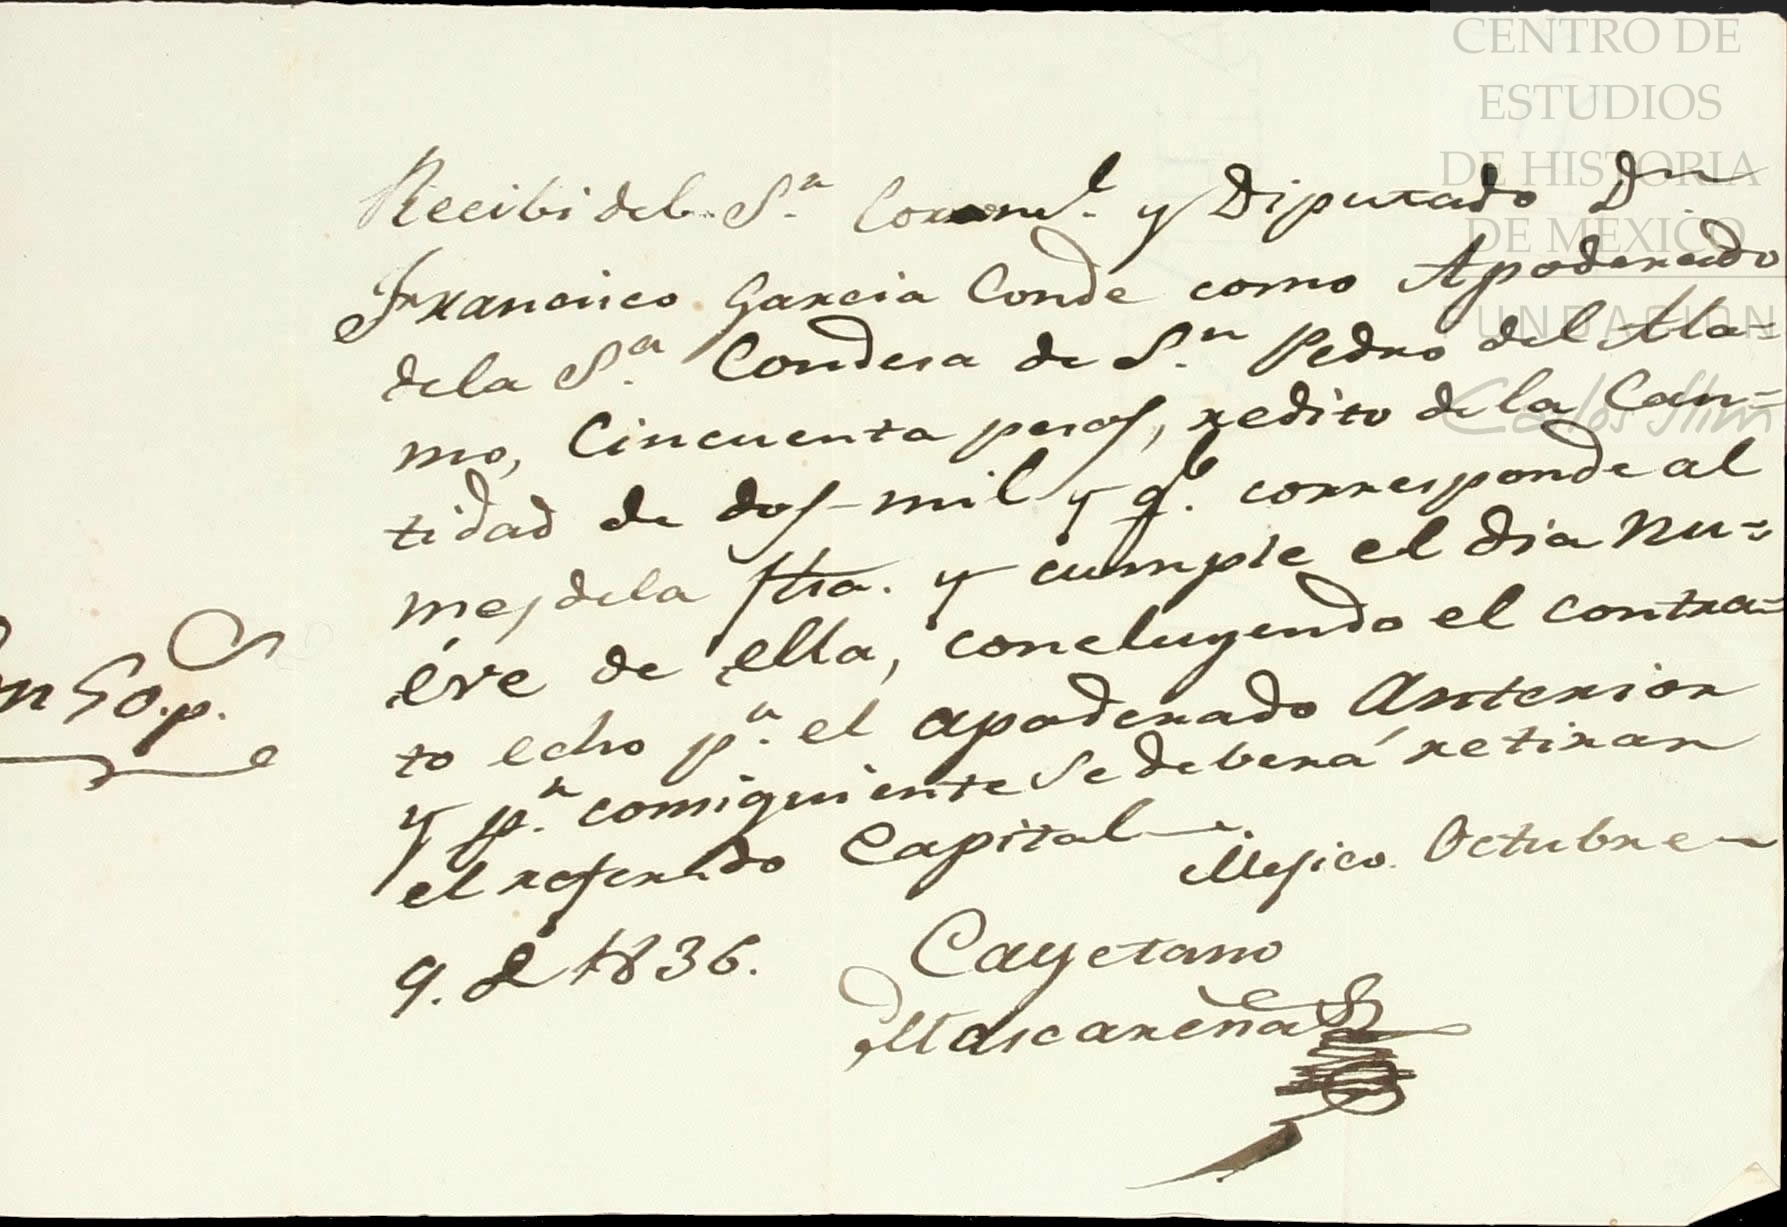 CENTRO DE
ESTUDIOS
DE HISTORIA
DE MÉXICO
FUNDACIÓN
Carlos Slim
Recibi del S.r Coronel. y Diputado Dn
Francisco Garcia Conde como Apoderado
dela S.ra Condesa de S.n Pedro del Ala=
mo, Cincuenta pesos, redito dela Can=
tidad de dos mil y q.e corresponde al
mes dela fha. y cumple el dia nu=
eve de ella, concluyendo el contra=
to echo p.r el apoderado Anterior
y p.r consiguiente se deberá retirar
el referido Capital. Mejico. Octubre
9. de 1836. Cayetano
Mascareñas
n 50. p.